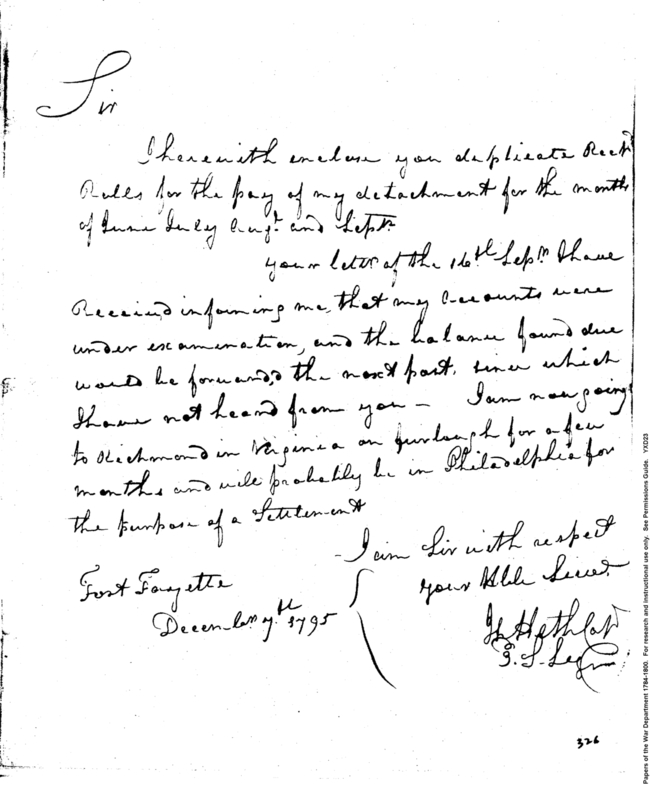 Sir
I herewith enclose you duplicate Rect
Rolls for the pay of my detachment for the months
of June July Augt. and Septr
your letter of the 16th Sepr. I have
Received informing me, that my Accounts were
under examination, and the balance found due
would be forwardd the next post, since which
I have not heard from you — I am now going
to Richmond in Virginia on furlough for a few
months and will probably be in Philadelphia for
the purpose of a Settlement
I am Sir with respect
your Hble Servt.
Fort Fayette
December 7th 1795
Heth Capt
3. S. Legn
326
Papers of the War Department 1784-1800. For research and instructional use only. See Permissions Guide. YXD23